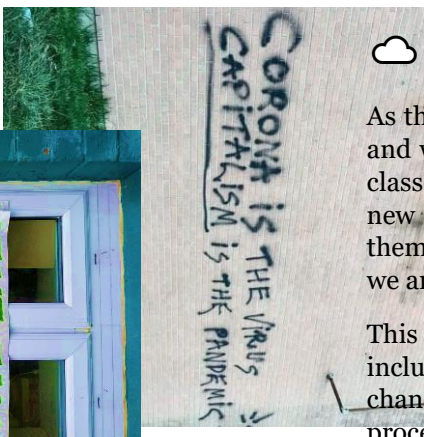 CORONA IS THE VIRUS
CAPITALISM IS THE PANDEMIC
As th
and
class
new
them
we ar
This
inclu
chan
proce